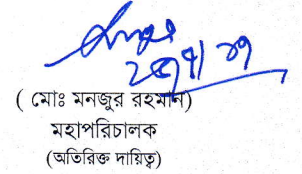 ( মোঃ মনজুর রহমান)
মহাপরিচালক
(অতিরিক্ত দায়িত্ব)